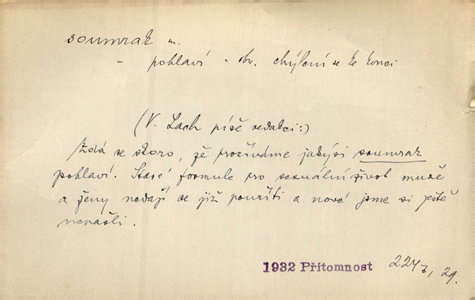 soumrak m.
- pohlaví - obr. chýlení se ke konci
(V. Lach píše redakci:)
Zdá se skoro, že prožíváme jakýsi soumrak
pohlaví. Staré formule pro sexuální život muže
a ženy nedají se již použíti a nové jsme si ještě
nenašli.
1932 Přítomnost 224 29.